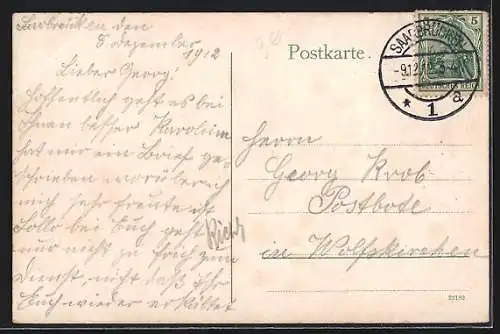 Saarbrücken den
8 Dezember
1912
Lieber Georg!
Hoffentlich geht es bei
Ihnen besser Karolina
hat mir ein Brief ge-
schrieben, worüber ich
mich sehr freute ist
bei Euch geht
nur nicht zu früh zum
Dienst, nicht daß Ihr
Euch wieder erkältet
Postkarte.
SAARBRÜCKEN
-9.12.12
* 1 a
5
DEUTSCHES REICH
Herrn
Georg Krob
Postbote
in Wolfskirchen
23183